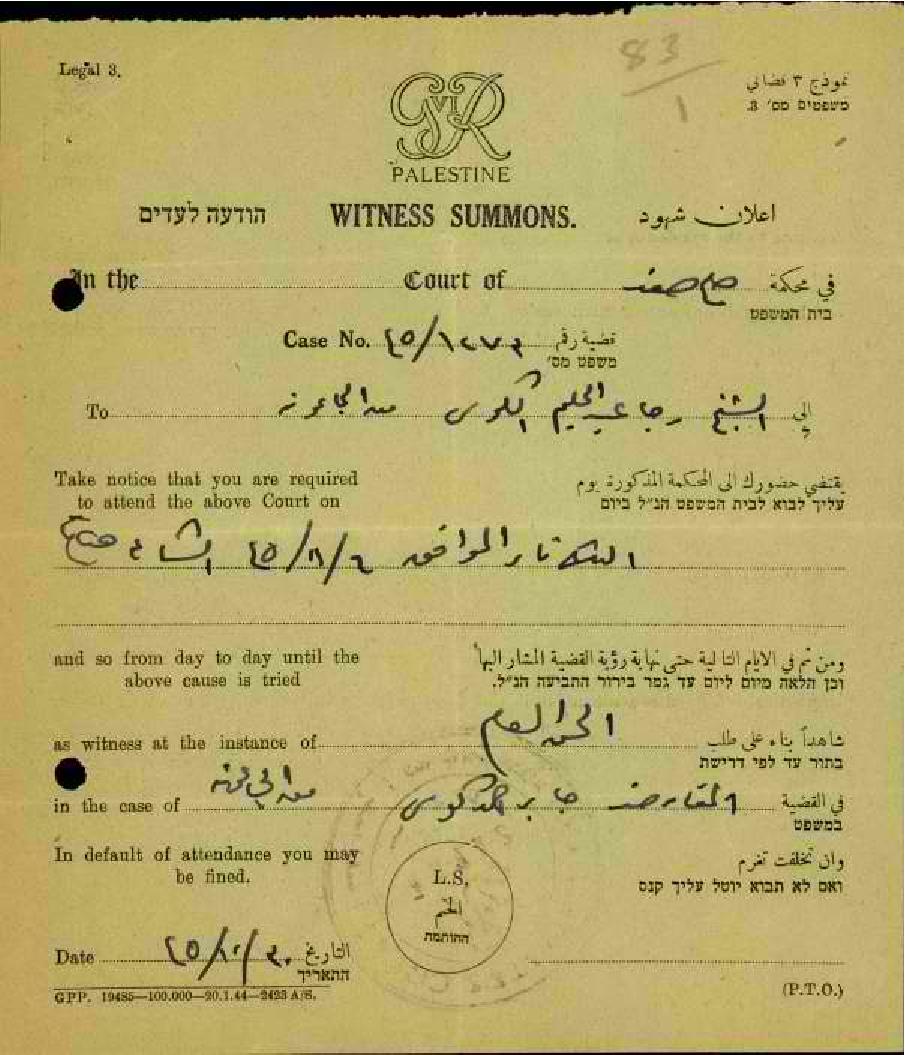 83
1
Legal 3.
نموذج ٣ قضائي
משפטים מס' 3.
G VI R
PALESTINE
הודעה לעדים WITNESS SUMMONS. اعلان شهود
In the Court of صلح صفد في محكمة
בית המשפט
Case No. ٤٥/١٢٧٣ قضية رقم
משפט מס'
To الشيخ رجا عبد الحليم من الجاعونه إلى
Take notice that you are required يقتضي حضورك الى المحكمة المذكورة يوم
to attend the above Court on עליך לבוא לבית המשפט הנ"ל ביום
الموافق ٤٥/١١/٦ الساعة
and so from day to day until the ومن ثم في الايام التالية حتى نهاية رؤية القضية المشار اليها
above cause is tried וכן הלאה מיום ליום עד גמר בירור התביעה הנ"ל.
as witness at the instance of الحق العام شاهداً بناء على طلب
בתור עד לפי דרישת
in the case of جابر من في القضية
במשפט
In default of attendance you may وان تخلفت تغرم
be fined. ואם לא תבוא יוטל עליך קנס
L.S.
الختم
החותמת
Date ٤٥/١٠/٣٠ التاريخ
התאריך
GPP. 19485—100.000—20.1.44—2423 A/S.
(P.T.O.)